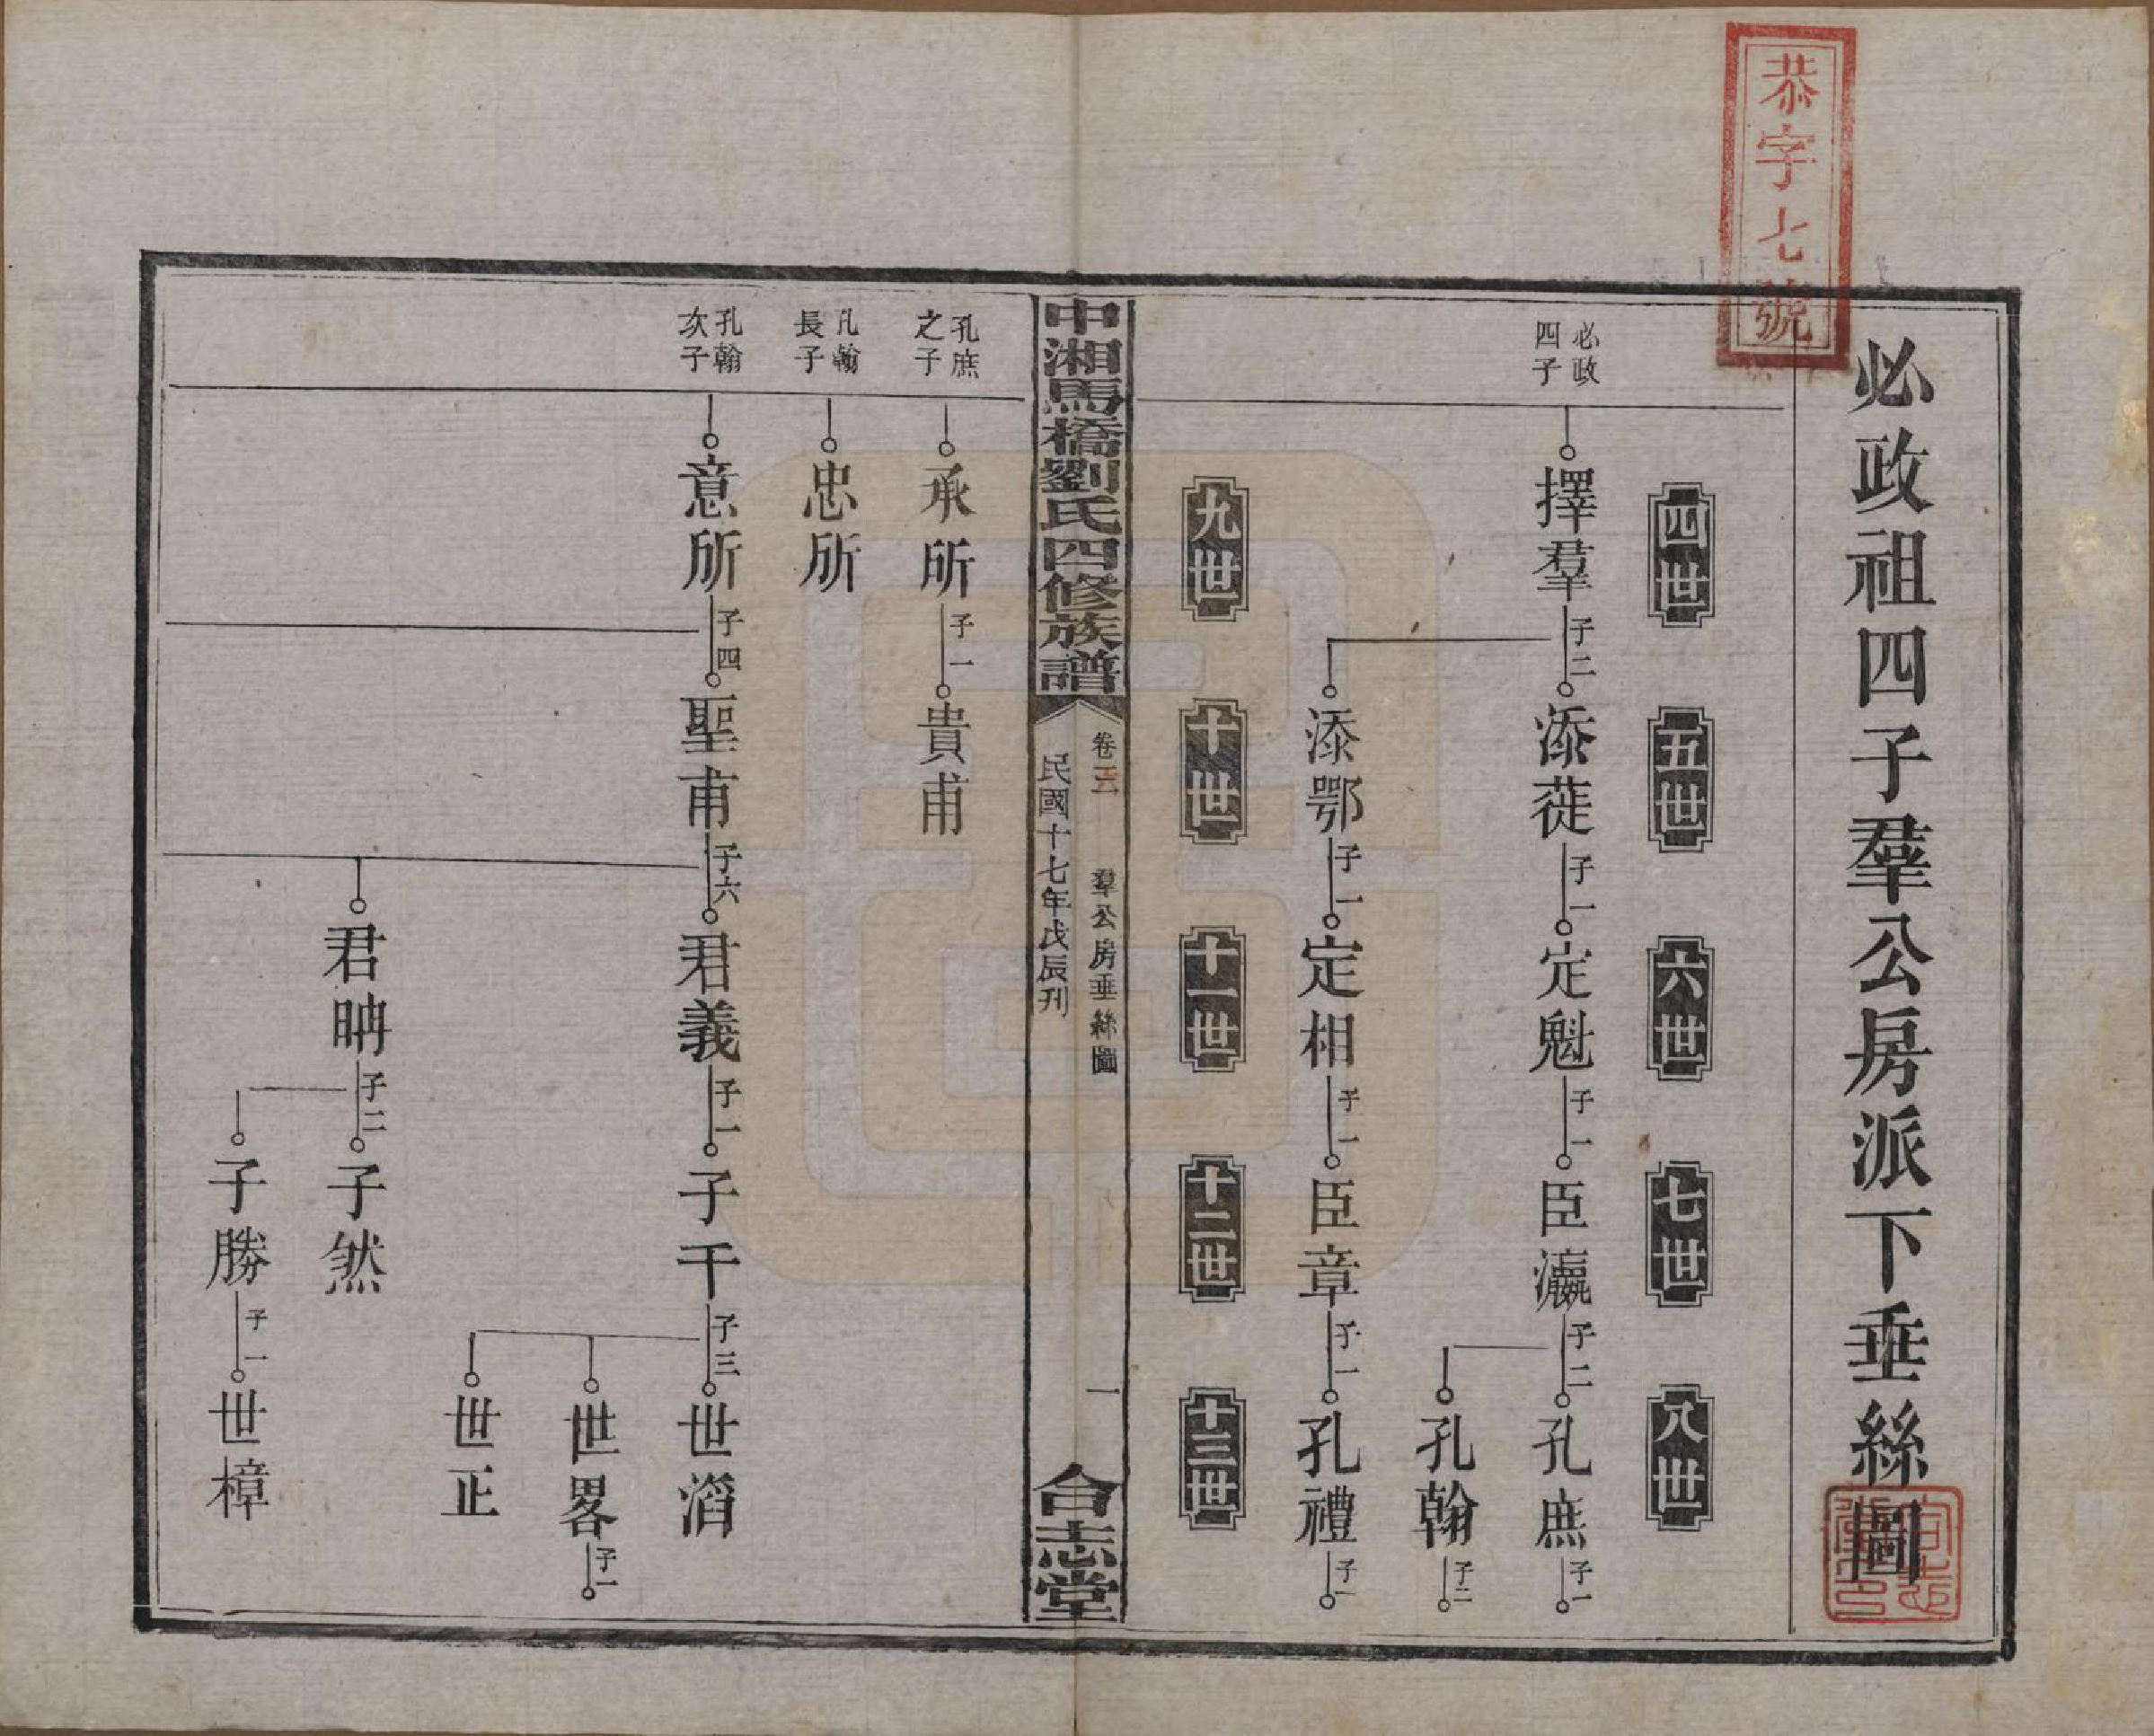 恭字七號
必政祖四子羣公房派下垂絲圖
四世
五世
六世
七世
八世
必政
四子
擇羣 子二
添蓰 子一
定魁 子一
臣瀛 子二
孔庶 子一
孔翰 子二
添鄂 子一
定相 子一
臣章 子一
孔禮 子一
九世
十世
十一世
十二世
十三世
中湘馬橋劉氏四修族譜
卷三五 羣公房垂絲圖 一
民國十七年戊辰刊
合志堂
孔庶
之子
承所 子一
貴甫
孔翰
長子
忠所
孔翰
次子
意所 子四
聖甫 子六
君義 子一
子干 子三
世滔
世畧 子一
世正
君𣆀 子二
子然
子勝 子一
世樟